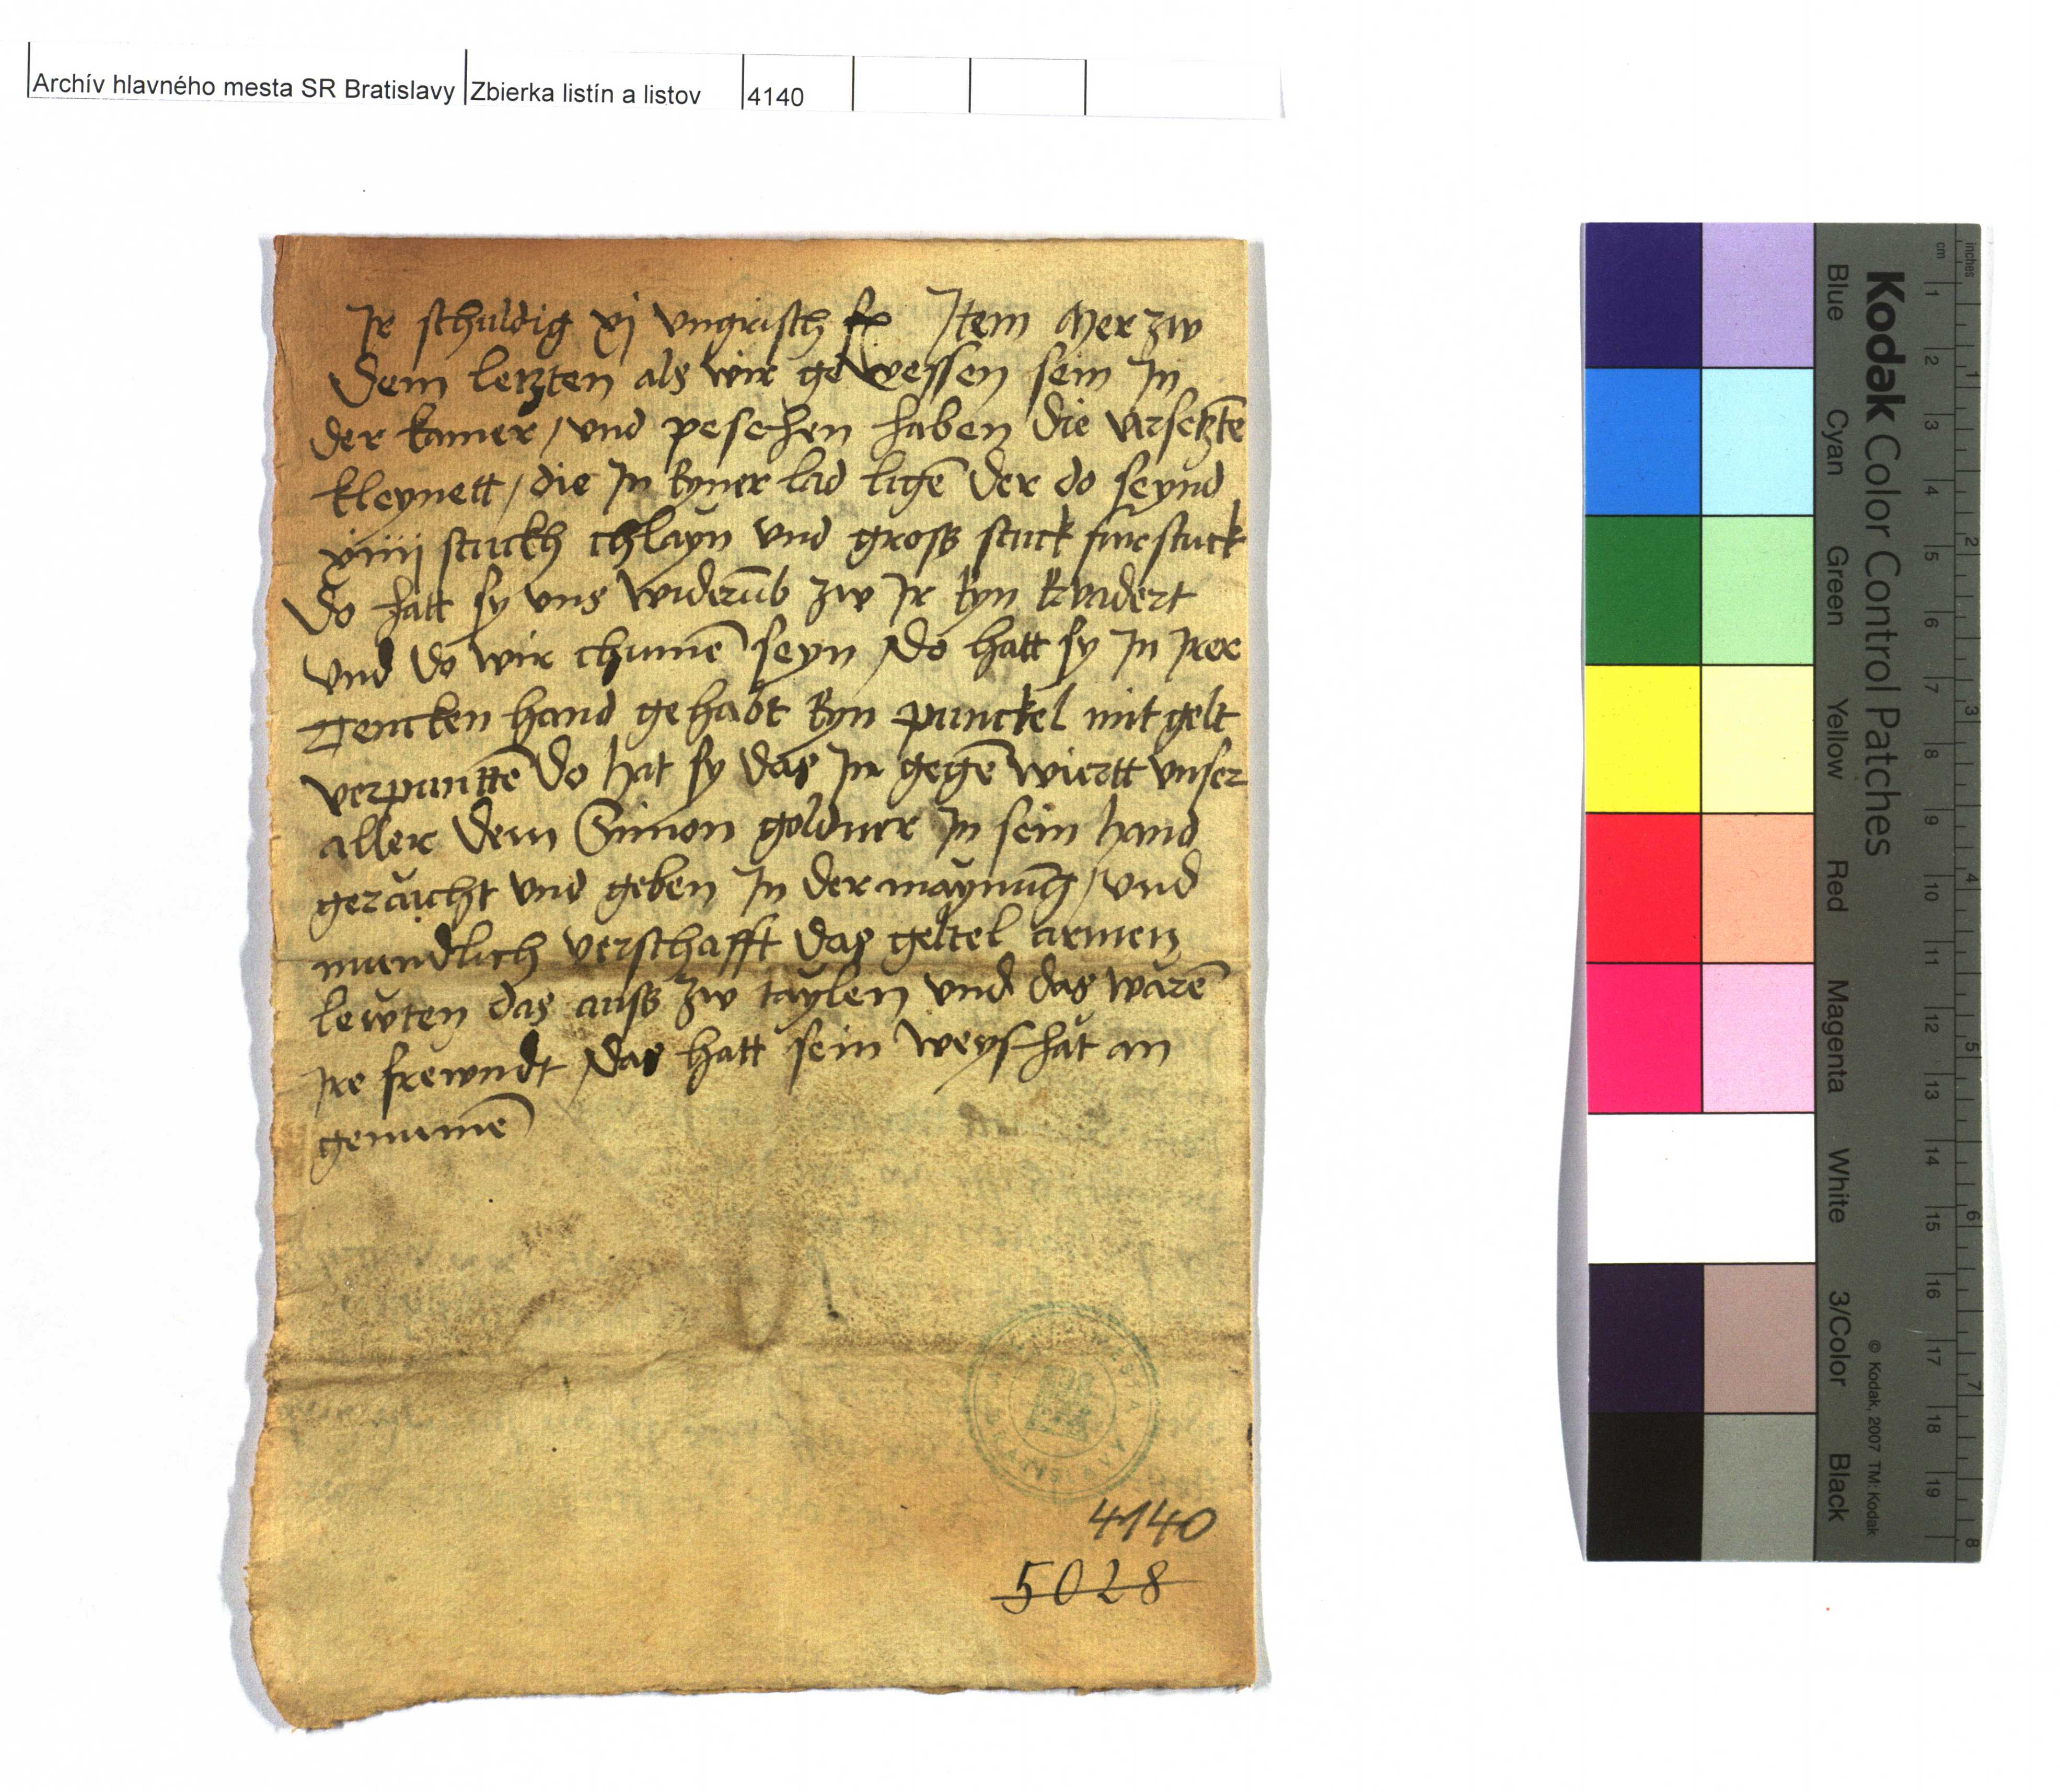 Archív hlavného mesta SR Bratislavy Zbierka listín a listov 4140
Jr schuldig xj vngrisch fl Jtem Mer zw
dem letzten als wir gewessen sein Jn
der kamer / vnd pesehen haben die versetztē
kleynett / die Jn eyner lad ligē der do seynd
xiiij stuckh chlayn vnd gross stuck fur stuck
Do hatt sy vns widerūb zw Jr eyn
vnd do wir chumē seyn / Do hatt sy Jn Jrer
Tencken hand gehabt eyn punckel mit gelt
verpunttē Do hat sy das Jn gegē wiertt vnser
aller dem Simon goldner Jn sein hand
geraicht vnd geben Jn der maynūg / vnd
mundlich verschafft das geltel armen
lewten das auss zw taylen vnd das warē
Jre frewndt / das hatt sein weyshat an
genumē
4140
5028
Kodak Color Control Patches
Blue Cyan Green Yellow Red Magenta White 3/Color Black
© Kodak, 2007 TM: Kodak
cm 1 2 3 4 5 6 7 8 9 10 11 12 13 14 15 16 17 18 19
inches 1 2 3 4 5 6 7 8